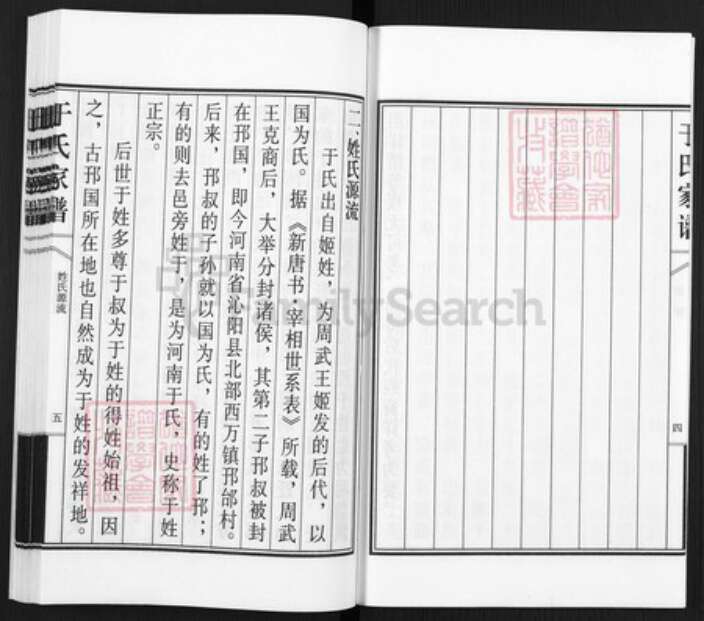 于氏家谱
四
二、姓氏源流
于氏出自姬姓，为周武王姬发的后代，以
国为氏。据《新唐书·宰相世系表》所载，周武
王克商后，大举分封诸侯，其第二子邘叔被封
在邘国，即今河南省沁阳县北部西万镇邘邰村。
后来，邘叔的子孙就以国为氏，有的姓了邘；
有的则去邑旁姓于，是为河南于氏，史称于姓
正宗。
后世于姓多尊于叔为于姓的得姓始祖，因
之，古邘国所在地也自然成为于姓的发祥地。
于氏家谱
姓氏源流
五
FamilySearch